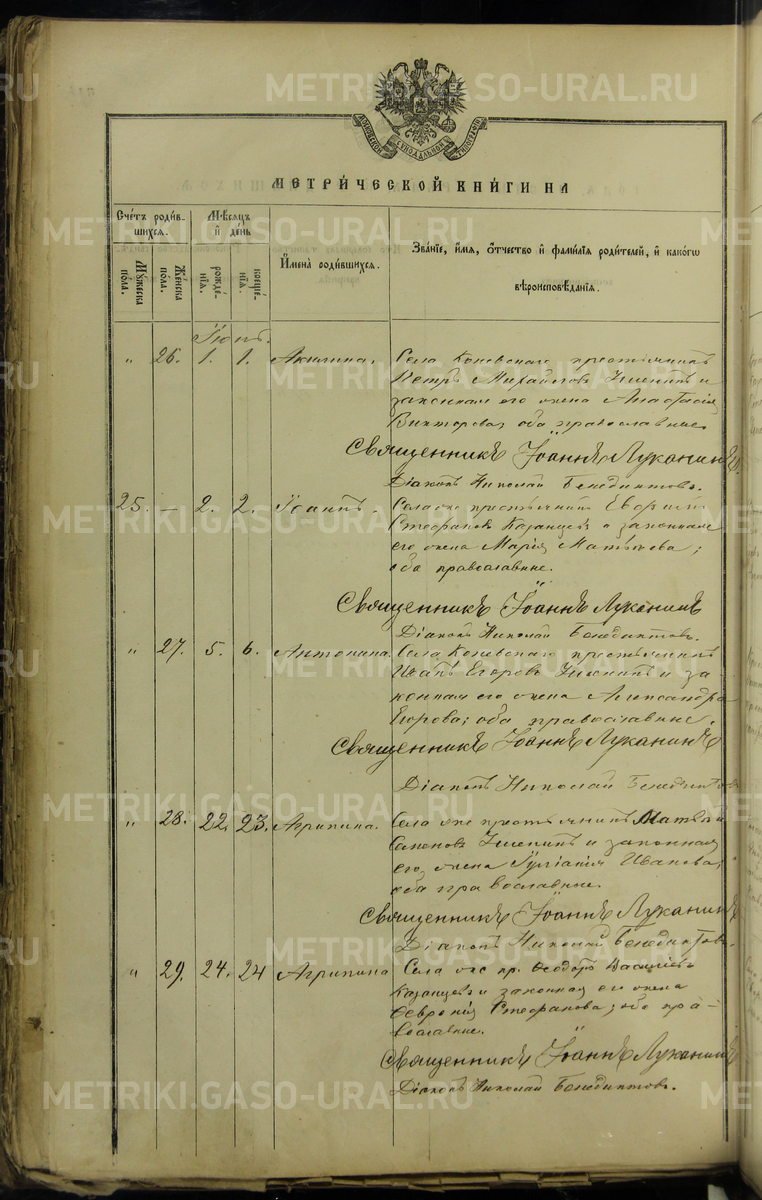 МЕТРИ́ЧЕСКОЙ КНИ́ГИ НА
Сче́тъ роди́в-
шихся.
Мѣ́сяцъ
и҆ де́нь
Му́жеска
по́ла.
Же́нска
по́ла.
рожде́-
нїя.
креще́-
нїя.
И҆мена̀ роди́вшихся.
Зва́нїе, и҆́мя, ѻ҆́тчество и҆ фами́лїя роди́телей, и҆ како́гѡ
вѣроисповѣ́данїя.
Іюнь.
„ 26. 1. 1. Акилина. Села Коневскаго крестьянинъ
Петръ Михайловъ и
законная его жена Анастасія
Викторова, оба православные
Священникъ Іоаннъ Луканинъ.
Діаконъ Николай Бенедиктовъ.
25. — 2. 2. Іоаннъ. Села же крестьянинъ
Стефановъ Казанцевъ и законная
его жена Марія Матѳеева;
оба православные.
Священникъ Іоаннъ Луканинъ
Діаконъ Николай Бенедиктовъ.
„ 27. 5. 6. Антонина. Села Коневскаго крестьянинъ
Иванъ Егоровъ и за-
конная его жена Александра
Егорова; оба православные.
Священникъ Іоаннъ Луканинъ
Діаконъ Николай Бенедиктовъ
„ 28. 22. 23. Агрипина. Села же крестьянинъ Матвѣй
Семеновъ и законная
его жена Іуліанія Иванова;
оба православные.
Священникъ Іоаннъ Луканинъ
Діаконъ Николай Бенедиктовъ.
„ 29. 24. 24 Агрипина Села же кр. Ѳеодотъ Василіевъ
Казанцевъ и законная его жена
Февронія Стефанова; оба пра-
вославные.
Священникъ Іоаннъ Луканинъ
Діаконъ Николай Бенедиктовъ.
METRIKI.GASO-URAL.RU